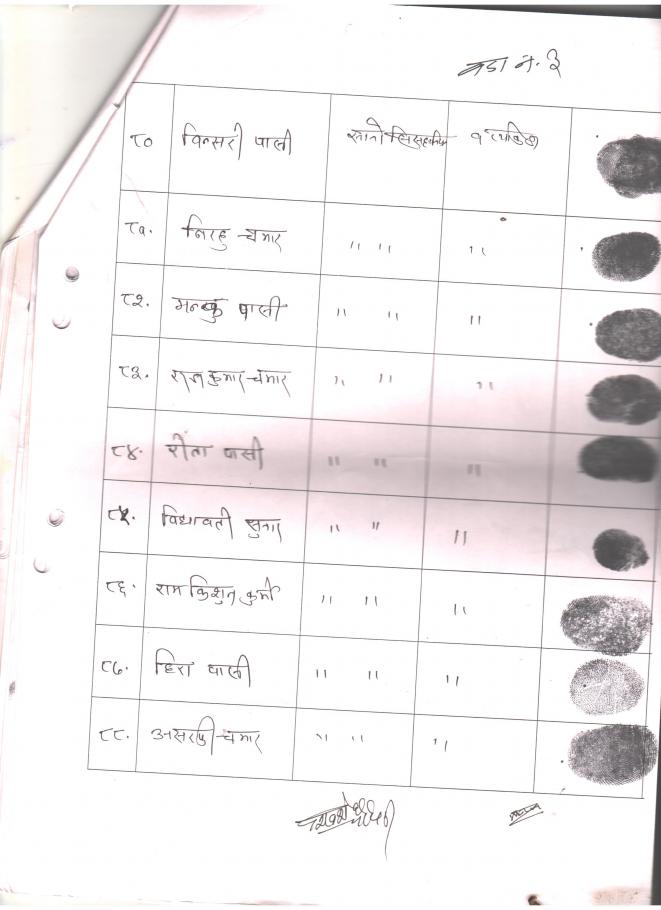 वडा नं. ३
८० किन्सरी पासी १
८१. निरहु चमार " " "
८२. मनकु पासी " " "
८३. राजकुमार चमार " " "
८४. रीता पासी " " "
८५. विद्यावती सुनार " " "
८६. राम किशुन कुर्मी " " "
८७. हिरा पासी " " "
८८. असरफी चमार " " "